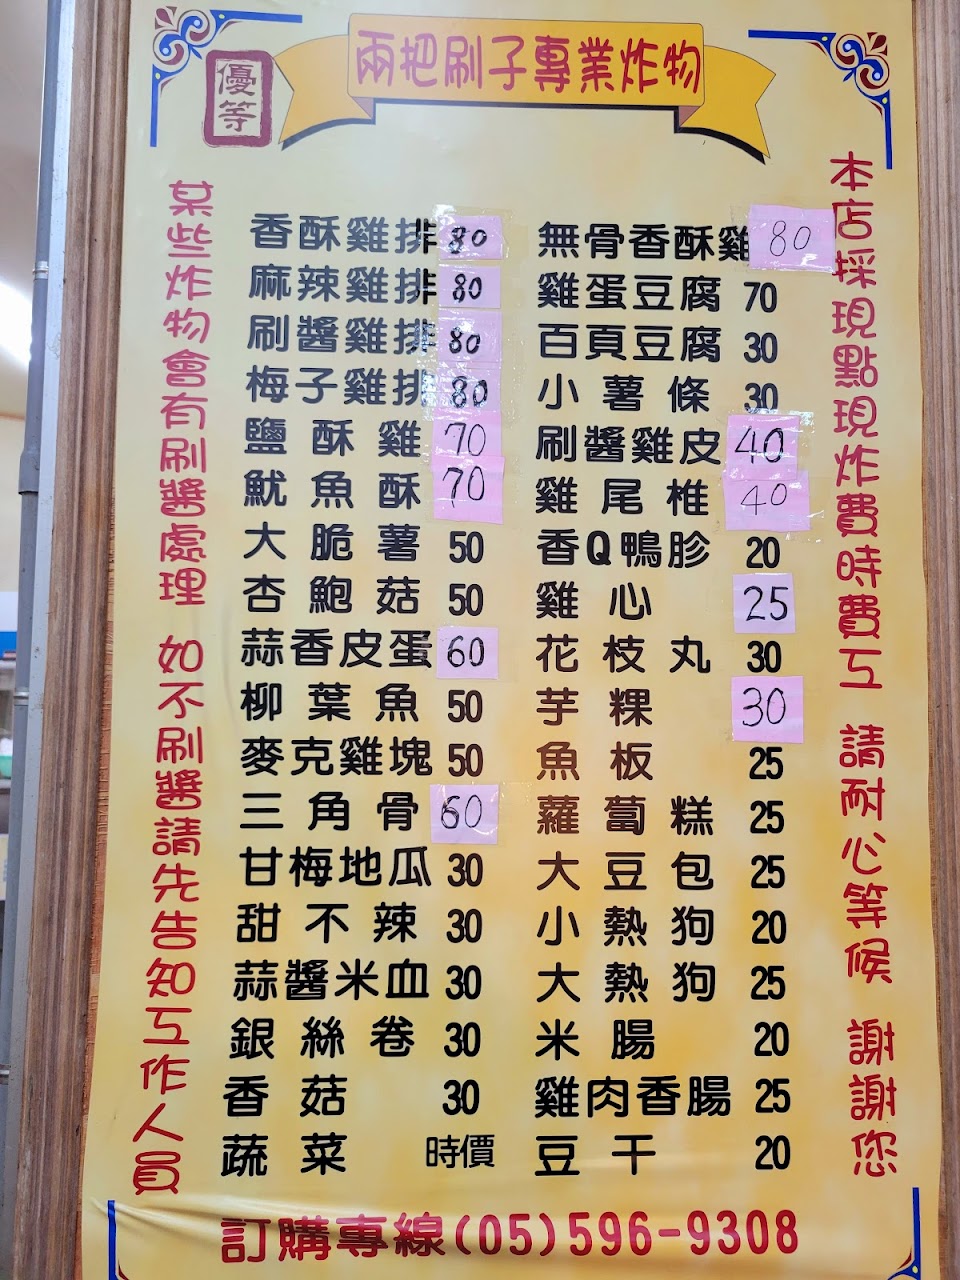 兩把刷子專業炸物
優等
某些炸物會有刷醬處理 如不刷醬請先告知工作人員
香酥雞排 80
麻辣雞排 80
刷醬雞排 80
梅子雞排 80
鹽酥雞 70
魷魚酥 70
大脆薯 50
杏鮑菇 50
蒜香皮蛋 60
柳葉魚 50
麥克雞塊 50
三角骨 60
甘梅地瓜 30
甜不辣 30
蒜醬米血 30
銀絲卷 30
香菇 30
蔬菜 時價
無骨香酥雞 80
雞蛋豆腐 70
百頁豆腐 30
小薯條 30
刷醬雞皮 40
雞尾椎 40
香Q鴨胗 20
雞心 25
花枝丸 30
芋粿 30
魚板 25
蘿蔔糕 25
大豆包 25
小熱狗 20
大熱狗 25
米腸 20
雞肉香腸 25
豆干 20
本店採現點現炸費時費工 請耐心等候 謝謝您
訂購專線(05)596-9308